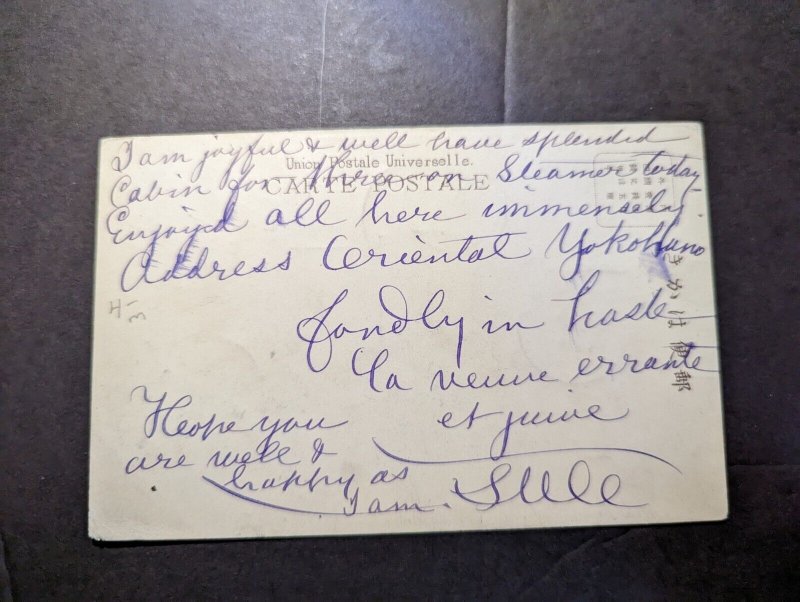 I am joyful & well have splendid
Union Postale Universelle.
Cabin for three on Steamer today
CARTE POSTALE
Enjoyd all here immensely
Address Oriental Yokohama
fondly in haste
la veuve errante
et juive
Hope you
are well &
happy as
I am.
きかは便郵